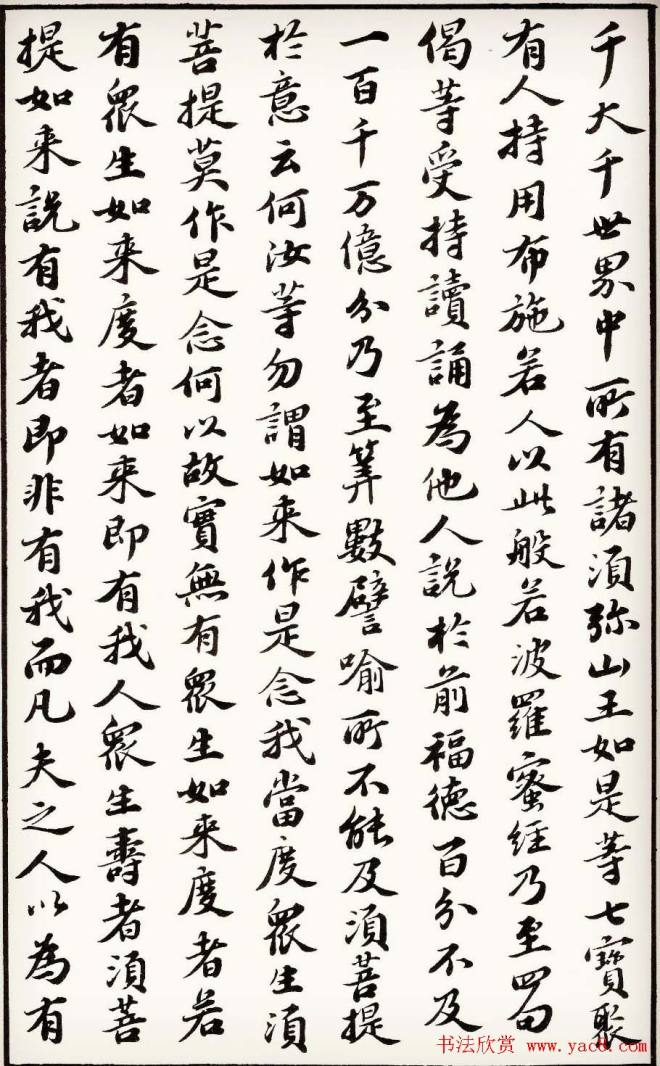 千大千世界中所有諸須弥山王如是等七寶聚
有人持用布施若人以此般若波羅蜜经乃至四句
偈等受持讀誦為他人說於前福德百分不及
一百千万億分乃至筭數譬喻所不能及須菩提
於意云何汝等勿謂如来作是念我當度眾生須
菩提莫作是念何以故實無有眾生如来度者若
有眾生如来度者如来即有我人眾生壽者須菩
提如来說有我者即非有我而凡夫之人以為有
书法欣赏 www.yac8.com